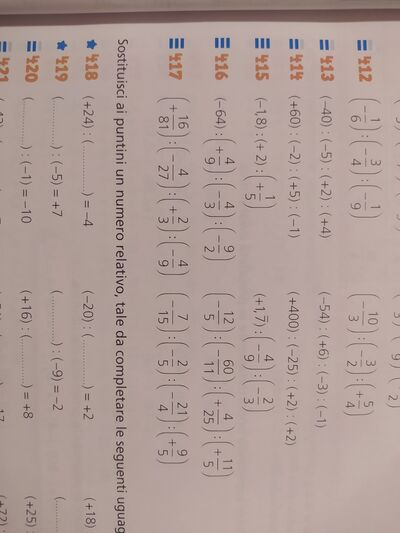 412 (−1/6) : (−3/4) : (−1/9) (−10/3) : (−3/2) : (+5/4)
413 (−40) : (−5) : (+2) : (+4) (−54) : (+6) : (−3) : (−1)
414 (+60) : (−2) : (+5) : (−1) (+400) : (−25) : (+2) : (+2)
415 (−1,8) : (+2) : (+1/5) (+1,7̅) : (−4/9) : (−2/3)
416 (−64) : (+4/9) : (−4/3) : (−9/2) (−12/5) : (−60/11) : (+4/25) : (+11/5)
417 (+16/81) : (−4/27) : (+2/3) : (−4/9) (−7/15) : (−2/5) : (−21/4) : (+9/5)
Sostituisci ai puntini un numero relativo, tale da completare le seguenti uguag
418 (+24) : (..........) = −4 (−20) : (..........) = +2 (+18)
419 (..........) : (−5) = +7 (..........) : (−9) = −2 (..........
420 (..........) : (−1) = −10 (+16) : (..........) = +8 (+25) :
421 (+72) :